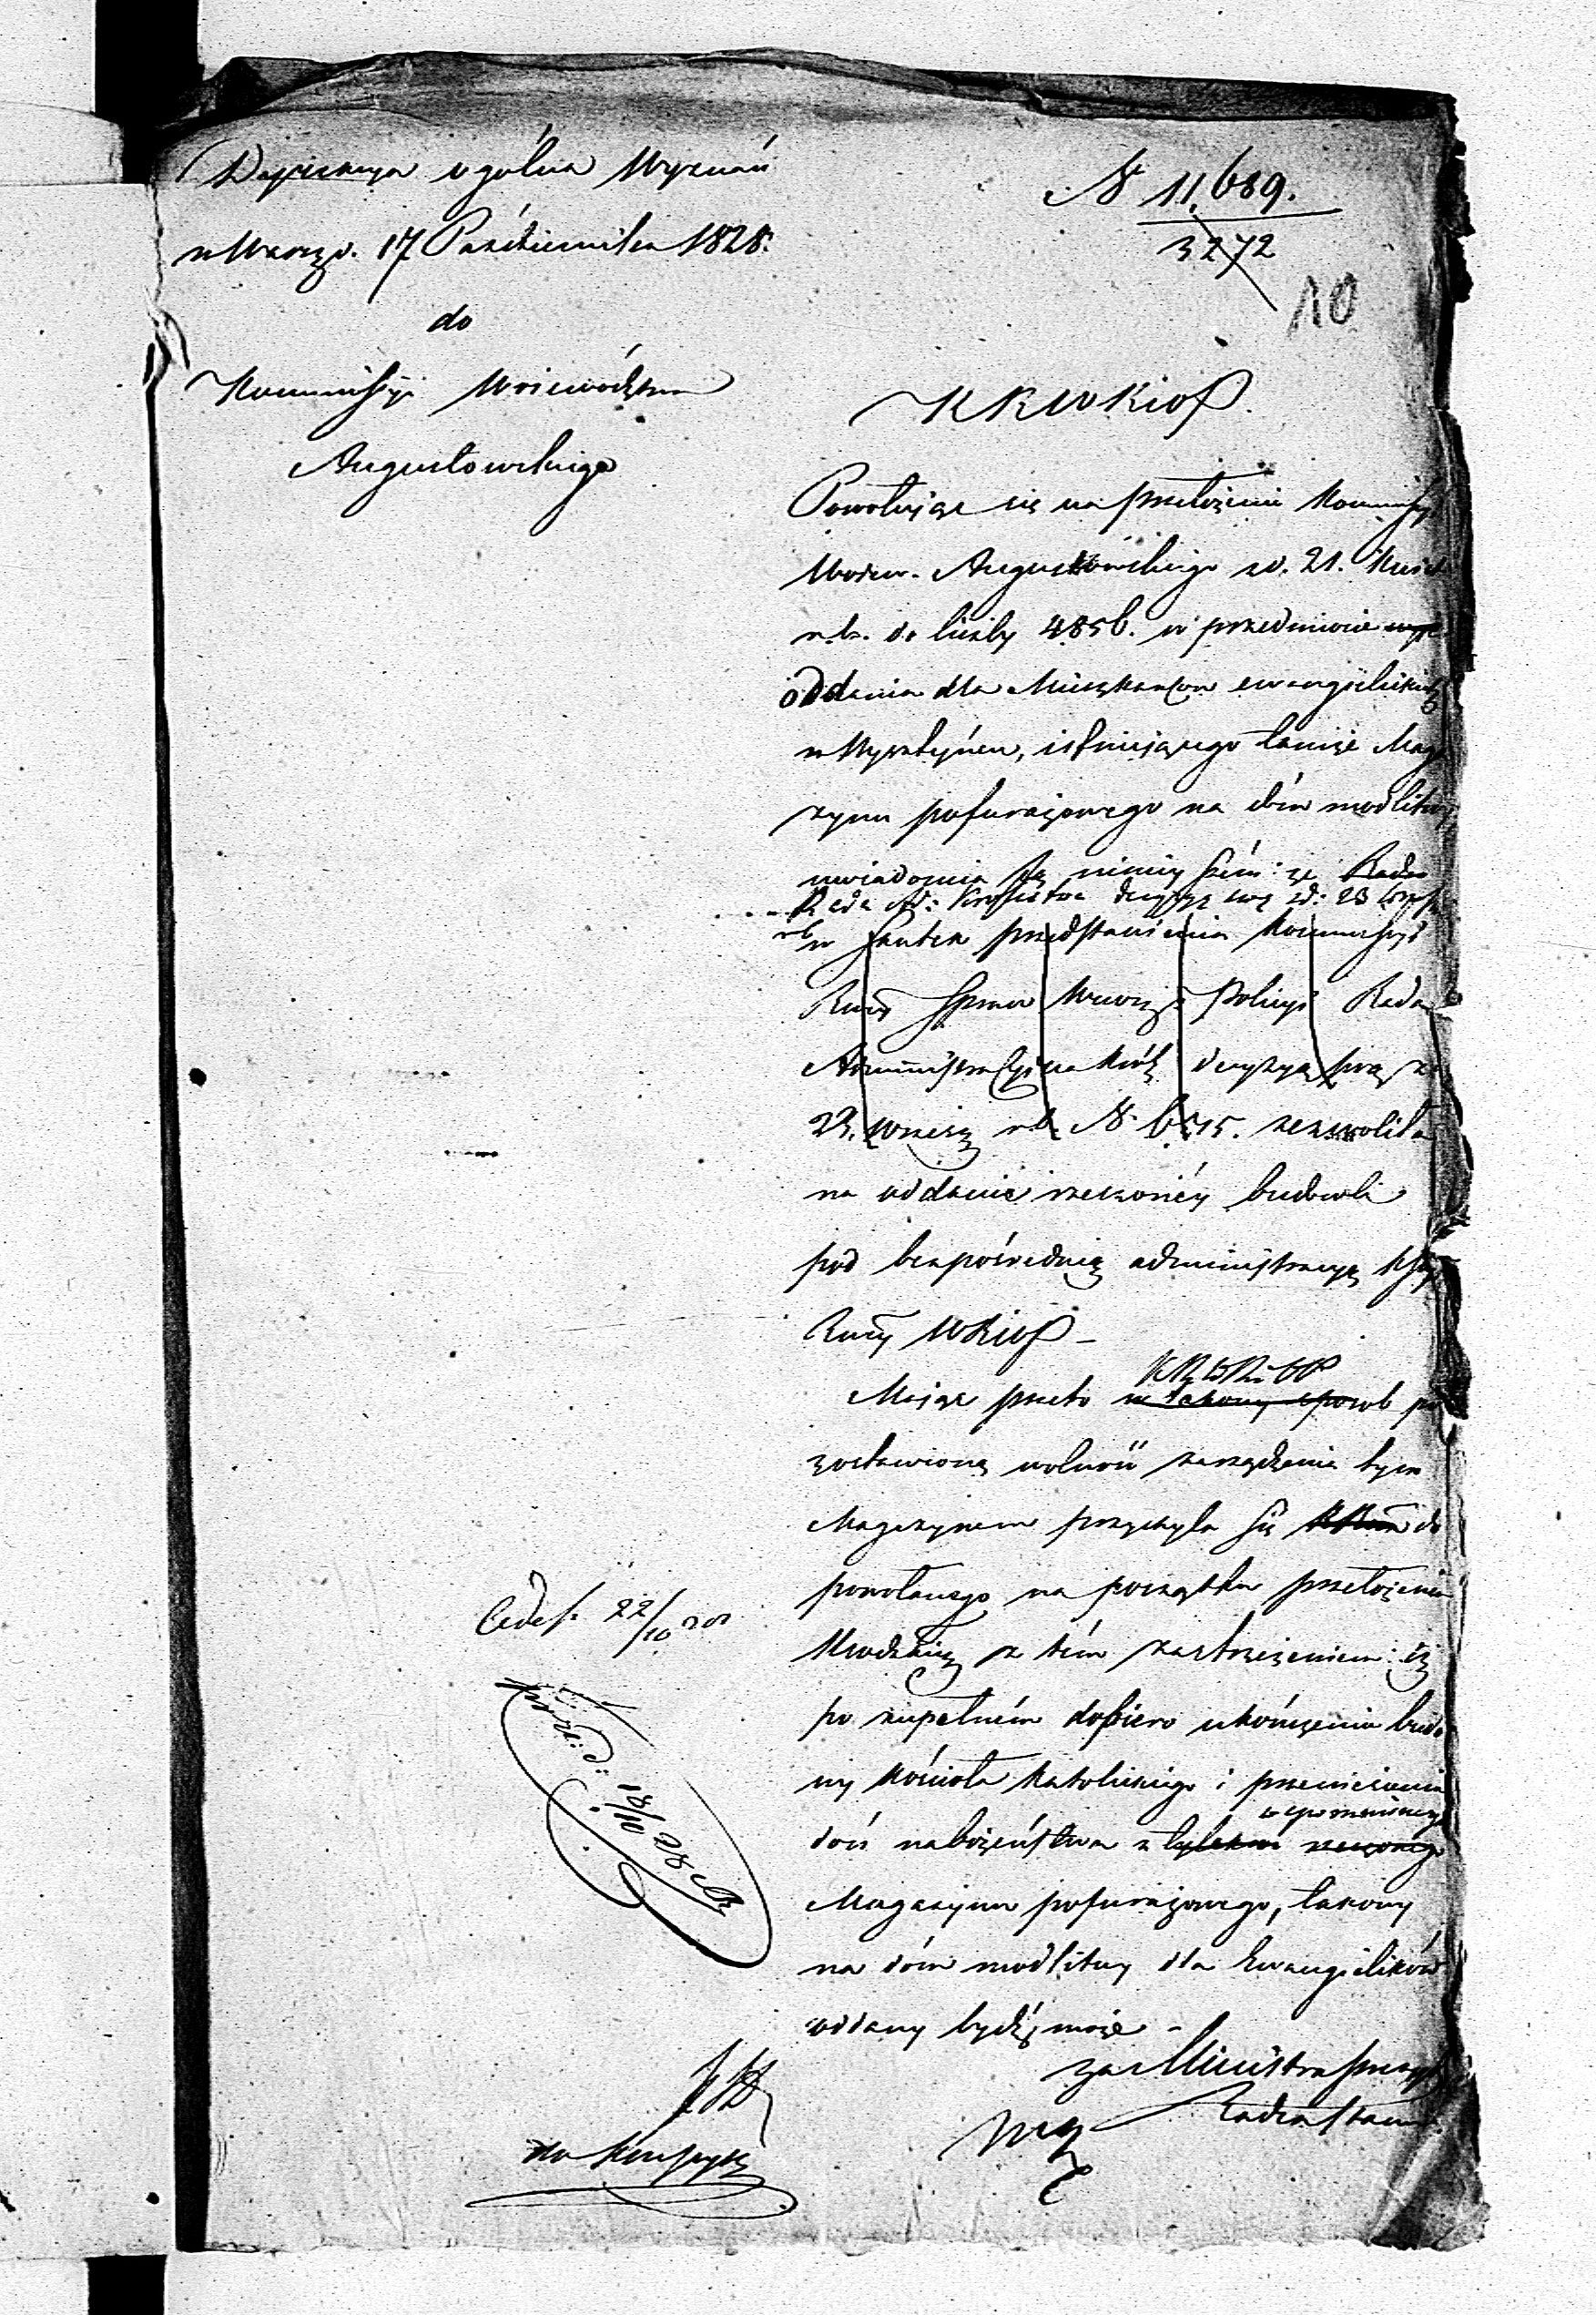 Dyrekcya ogólna Wyznań
w Warszw. 17 Października 1828.
do
Kommissyi Woiewództwa
Augustowskiego
N 11,689.
3272
10
KRWRiOP.
Powołując się na przełożenie Kommissyi
Woiew. Augustowskiego z d. 21.
r.b. do liczby 4856. w przedmiocie
oddania dla Mieszkańców ewangielickich
w Wysztyńcu, istniejącego tamże Maga
zynu pofurażowego na dóm modlitwy
uwiadomia Ją niniejszém: że Rada
Rada Ad: Królestwa decyzyą swą z d: 23 Wrześ
rb
w skutek przedstawienia Kommissyi
Rząd. Spraw Wewn. i Policyi Rada
Administracyjna Król. decyzyą swą z d.
23. Wrześ. r.b. N. 6515. zezwoliła
na oddanie rzeczonéj budowli
pod bezpośrednią administracyą Kssyi
Rządy WRiOP –
KRWRiOP
Mając przeto w takowy sposób po
zostawioną wolność zarządzenia tym
Magazynem przychyla się do
powołanego na początku przełożenia
Wwódzkiéj z tém zastrzeżeniem: iż
po zupełném dopiero ukończeniu budo
wy kościoła katolickiego i przeniesieniu
wspomnionego
doń nabożeństwa z tylekroć rzeczonego
Magazynu pofurażowego, takowy
na dóm modlitwy dla Ewangielików
oddany bydź może –
za Ministra Prezyd
Radca Stanu
22/10
18/10 28
do Kossyi